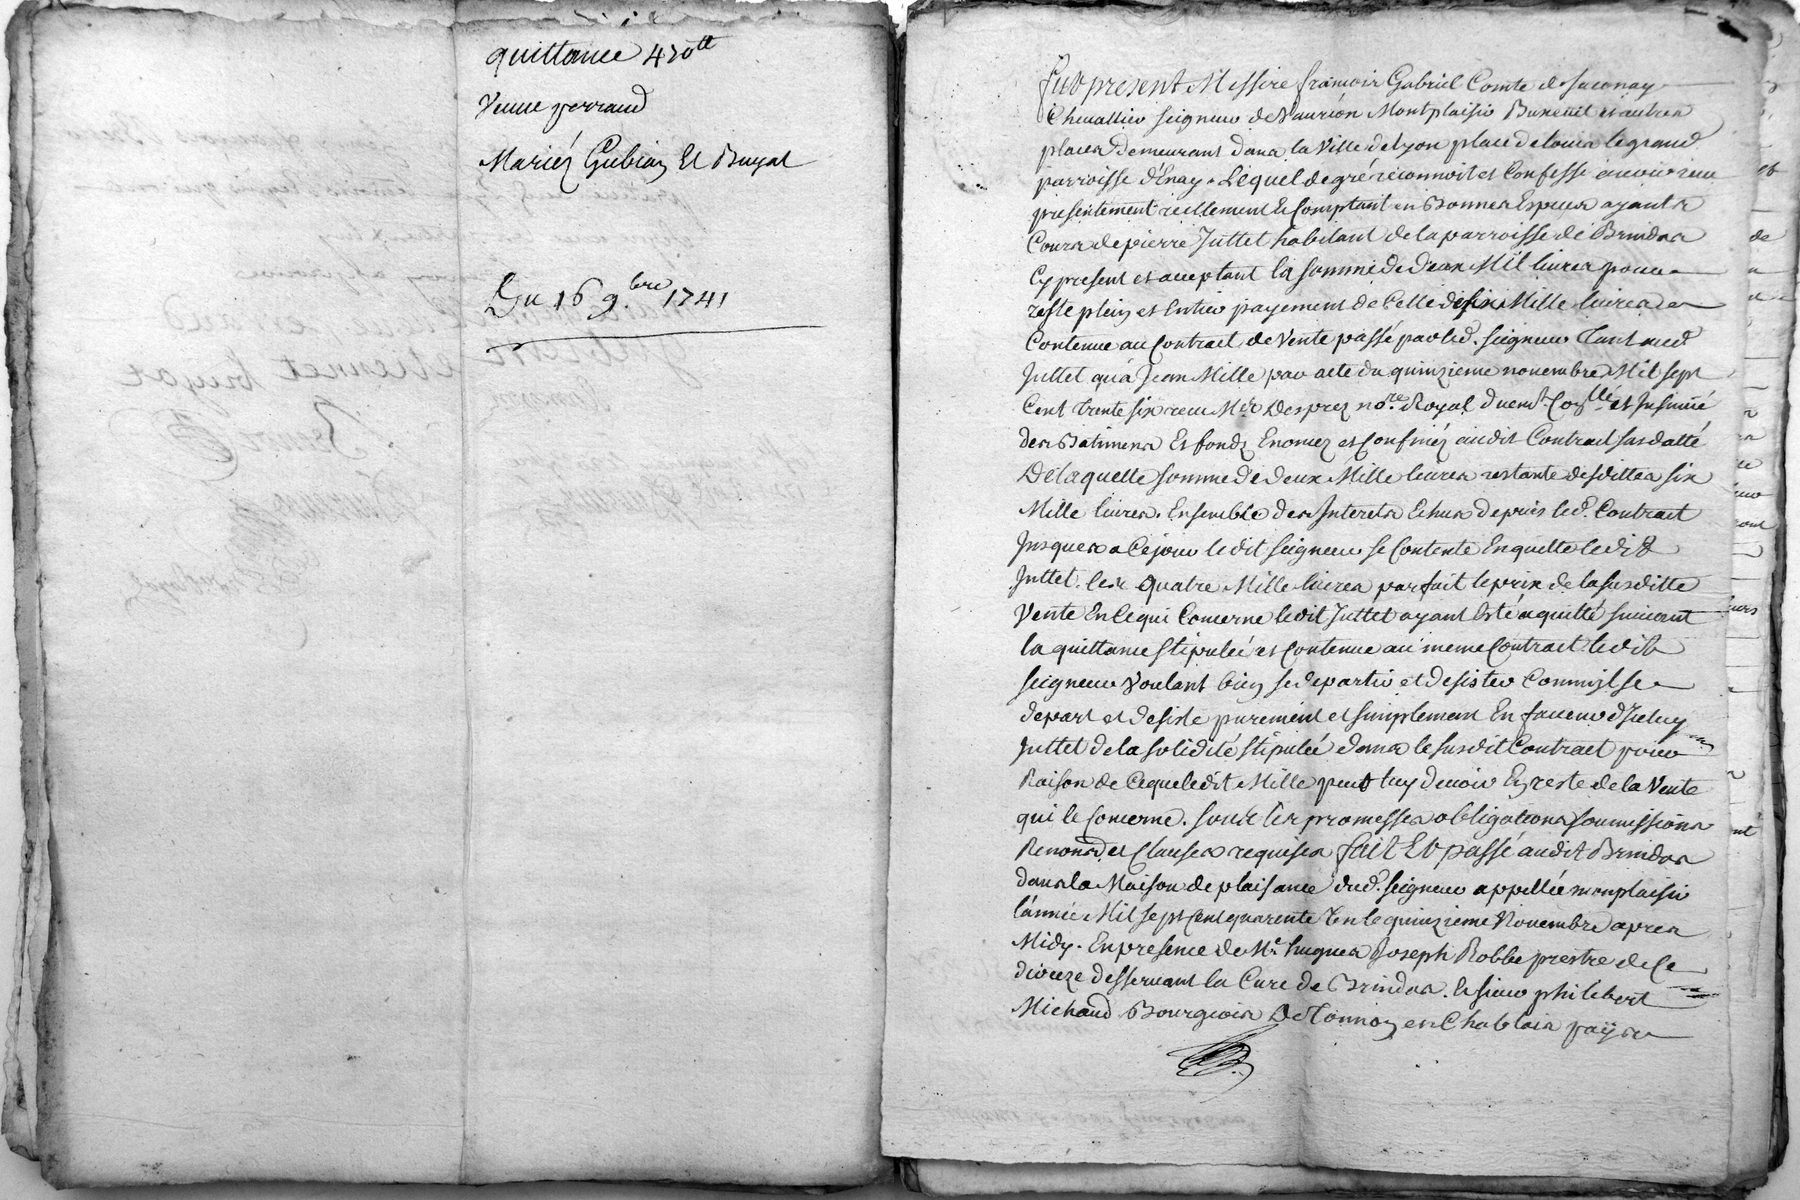 quittance 430tt
Veuve perraud
Mariéz Gubian Et Buyat
Du 16 9.bre 1741
Fut present Messire françois Gabriel Comte de Saconay
Chevallier seigneur de Vaurion Montplaisir Buxeuil et autres
places demeurant dans la Ville de Lyon place de Louis le grand
parroisse d'Enay. Lequel de gré reconnoit et Confesse avoir receu
presentement réellement Et Comptant en Bonnes Especes ayants
Cours de pierre Juttet habitant de la parroisse de Brindas
Cy present et aceptant la somme de deux Mil livres pour
reste plein et Entier payement de Celle de six Mille livres
Contenue au Contrait de Vente passé par led. seigneur Tant aud.
Juttet qu'a Jean Mille par acte du quinzieme novembre Mil sept
Cent trente six receu Me. Desprez no.re Royal duem.t Con.llé et Insinüé
des Batimens Et fondz Enoncez et Confinéz audit Contrait susdatté
De laquelle somme de deux Mille livres restante desdittes six
Mille livres. Ensemble des Interets Echus depuis led. Contrait
Jusques a Ce jour ledit seigneur se Contente En quitte ledit
Juttet. les quatre Mille livres parfait le prix de la susditte
Vente En Ce qui Concerne ledit Juttet ayant Esté aquitté suivant
la quittance stipulée et Contenue au meme Contrait ledit
seigneur Voulant bien se departir et desister Comm'il se
depart et desiste purement et simplement En faveur d'Iceluy
Juttet de la solidité stipulée dans le susdit Contrait pour
Raison de Ce que ledit Mille peut luy devoir En reste de la Vente
qui le Concerne. sous les promesses obligations soumissions
Renons. et Clauses requises fait Et passé audit Brindas
dans la Maison de plaisance dud. seigneur appellée monplaisir
l'année Mil sept Cent quarente Un le quinzieme Novembre apres
Midy. En presence de Me. hugues Joseph Robbe prestre de Ce
dioceze desservant la Cure de Brindas. le sieur philibert
Michaud Bourgeois De Tonnon en Chablais païs